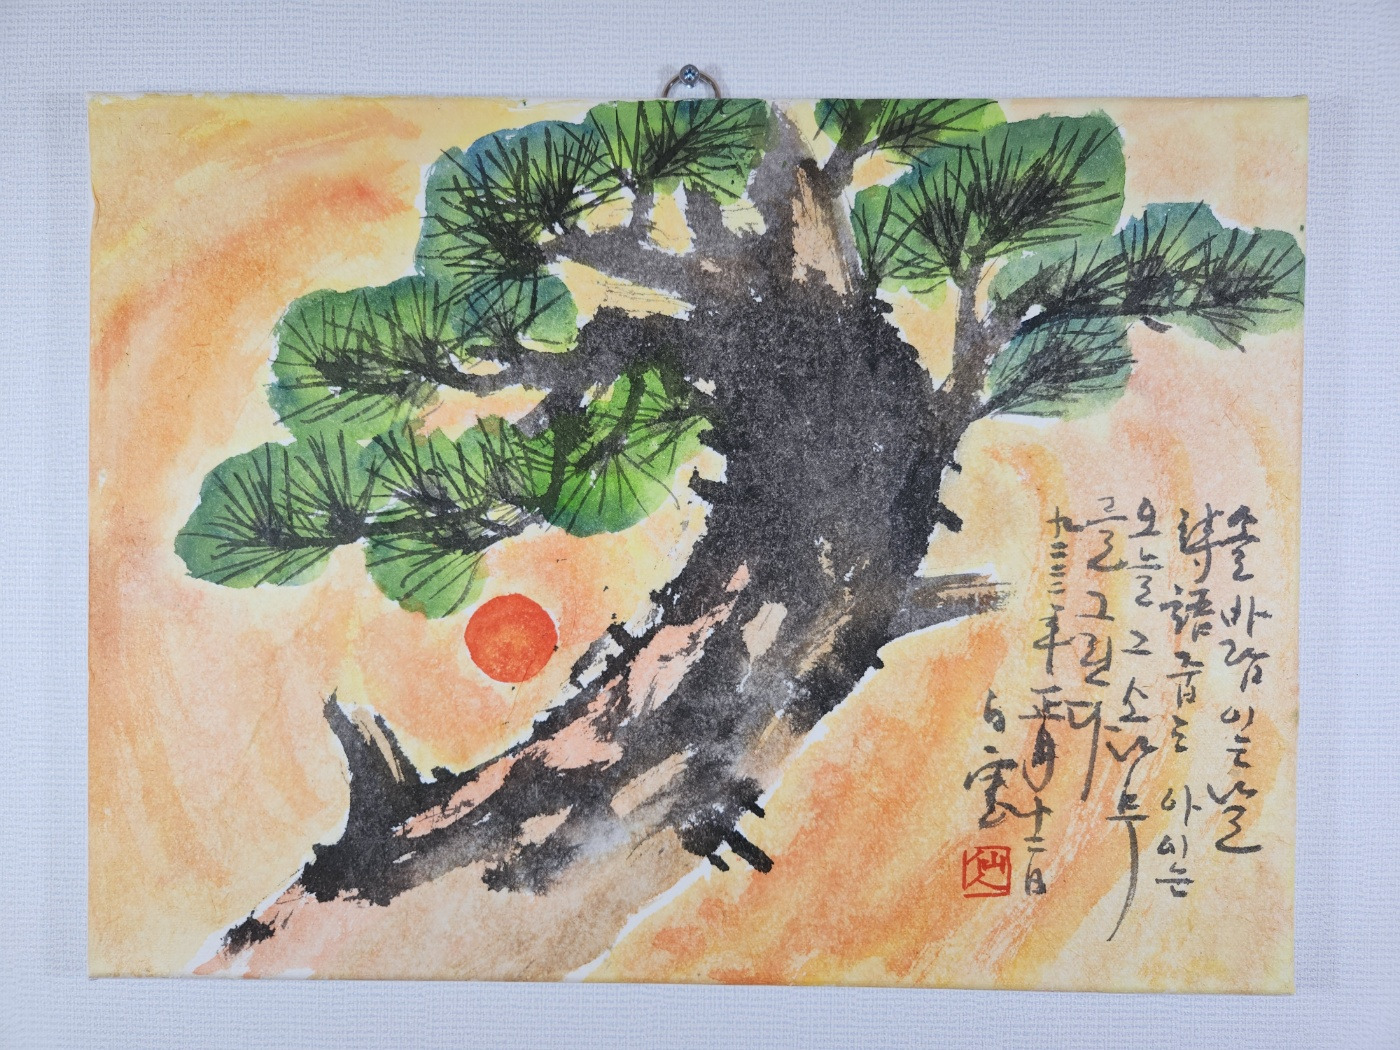 솔바람 이는 날
詩語 줍는 아이는
오늘 그 소나무
를 그린다
年 正月 十二日
白雲